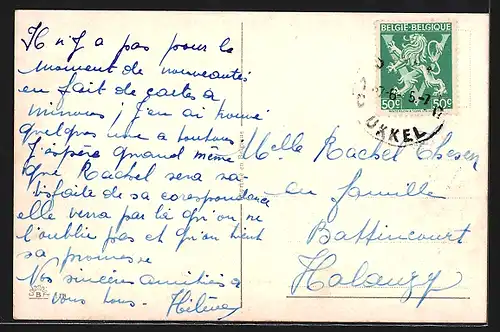 Il n'y a pas pour le
moment de nouveautés
en fait de cartes à
minous; j'en ai trouvé
quelques une a toutous
J'espère quand même
que Rachel sera sa-
tisfaite de sa corespondance
elle verra par là qu'on ne
l'oublie pas et qu'on tient
sa promesse
Nos sincères amitiés à
vous tous. Hélène
BELGIE-BELGIQUE
50c 50c
UKKEL
Melle Rachel Thesen
en famille
Battincourt
Halanzy